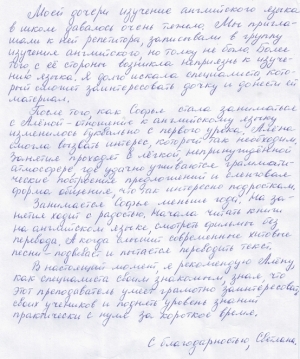 Моей дочери изучение английского языка
в школе давалось очень тяжело. Мы пригла-
шали к ней репетитора, записывали в группу
изучения английского, но толку не было. Более
того с её стороны возникла неприязнь к изуче-
нию языка. Я долго искала специалиста, кото-
рый сможет заинтересовать дочку и донести ей
материал.
После того, как Софья стала заниматься
с Алёной - отношение к английскому языку
изменилось буквально с первого урока. Алёна
смогла вызвать интерес, который так необходим.
Занятия проходят в лёгкой, непринуждённой
атмосфере, где удачно учитываются граммати-
ческие построения предложений и
форма общения, что так интересно подросткам.
Занимается Софья меньше года. На за-
нятия ходит с радостью. Начала читать книги
на английском языке, смотрит фильмы без
перевода. А когда слышит современные хитовые
песни - подпевает и пытается переводить текст.
В настоящий момент я рекомендую Алёну,
как специалиста своим знакомым, зная, что
этот преподаватель умеет грамотно заинтересовать
своих учеников и поднять уровень знаний
практически с нуля за короткое время.
С благодарностью, Светлана.